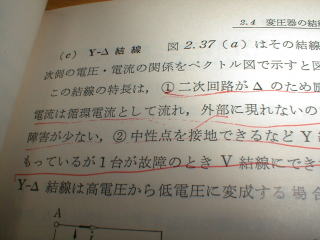 2.4 変圧器の結
(c) Y-Δ 結線 図 2.37 (a) はその結線
次側の電圧・電流の関係をベクトル図で示すと図
この結線の特長は, ① 二次回路が Δ のため励
電流は循環電流として流れ, 外部に現れないの
障害が少ない, ② 中性点を接地できるなど Y 結
もっているが 1 台が故障のとき V 結線にでき
Y-Δ 結線は高電圧から低電圧に変成する場合
A